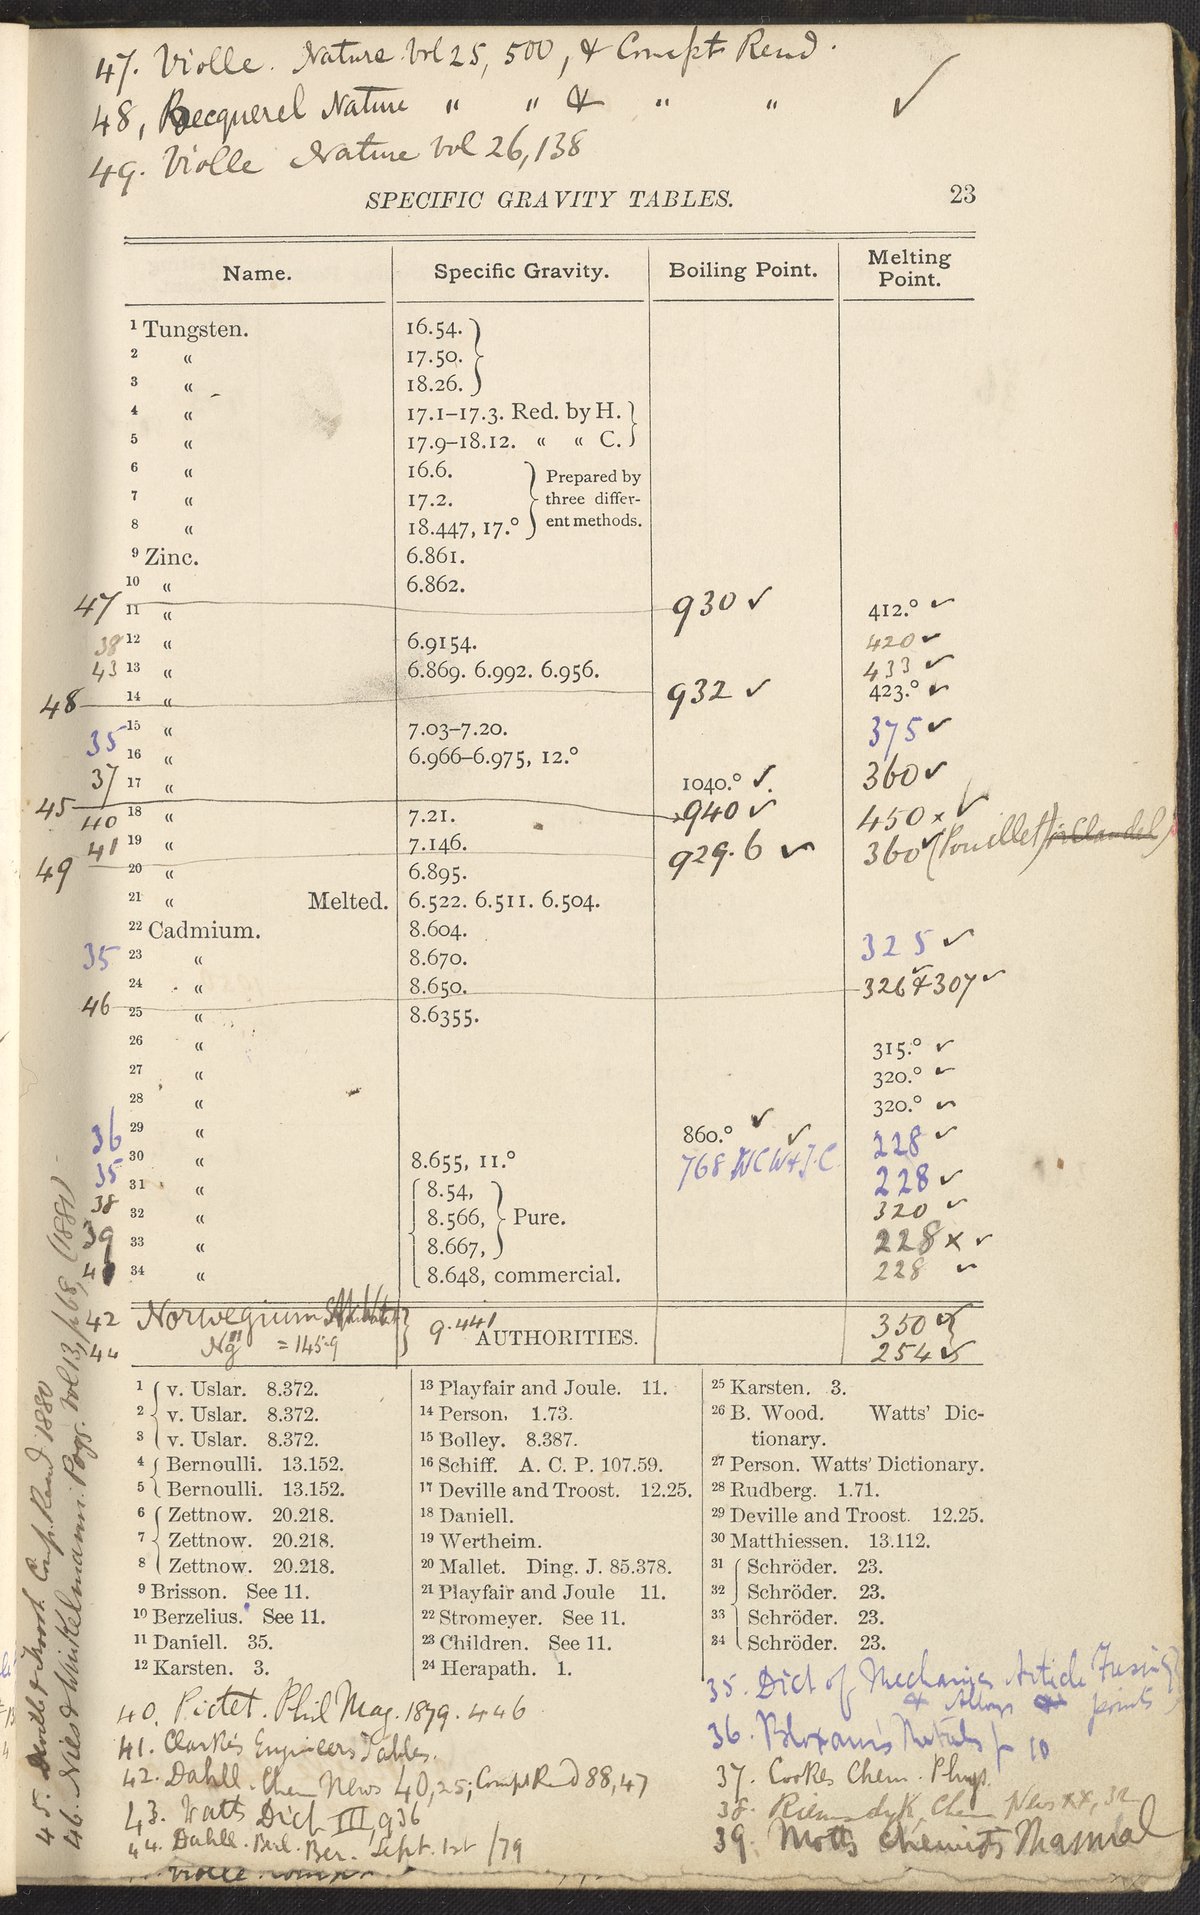 47. Violle. Nature Vol 25, 500, & Compt Rend.
48, Becquerel Nature " " & " "
49. Violle Nature Vol 26, 138
SPECIFIC GRAVITY TABLES. 23
Name. Specific Gravity. Boiling Point. Melting Point.
1 Tungsten. 16.54.
2 " 17.50.
3 " 18.26.
4 " 17.1–17.3. Red. by H.
5 " 17.9–18.12. " " C.
6 " 16.6. Prepared by
7 " 17.2. three differ-
8 " 18.447, 17.° ent methods.
9 Zinc. 6.861.
10 " 6.862.
47 11 " 930 ✓ 412.° ✓
38 12 " 6.9154. 420 ✓
43 13 " 6.869. 6.992. 6.956. 433 ✓
48 14 " 932 ✓ 423.° ✓
35 15 " 7.03–7.20. 375 ✓
37 16 " 6.966–6.975, 12.° 360 ✓
17 " 1040.° ✓
45 940 ✓
40 18 " 7.21. 450 x ✓
41 19 " 7.146. 360 ✓ (Pouillet)
49 20 " 6.895. 929.6 ✓
21 " Melted. 6.522. 6.511. 6.504.
22 Cadmium. 8.604.
35 23 " 8.670. 325 ✓
24 " 8.650.
46 326 ✓ & 307 ✓
25 " 8.6355.
26 " 315.° ✓
27 " 320.° ✓
28 " 320.° ✓
36 29 " 860.° ✓ 228 ✓
35 30 " 8.655, 11.° 768 ✓ 228 ✓
38 31 " 8.54, 320 ✓
39 32 " 8.566, Pure. 228 x ✓
33 " 8.667,
40 34 " 8.648, commercial. 228 ✓
42 Norwegium 9.441 350 ✓
44 Ng = 145.9 254 ✓
AUTHORITIES.
1 v. Uslar. 8.372.
2 v. Uslar. 8.372.
3 v. Uslar. 8.372.
4 Bernoulli. 13.152.
5 Bernoulli. 13.152.
6 Zettnow. 20.218.
7 Zettnow. 20.218.
8 Zettnow. 20.218.
9 Brisson. See 11.
10 Berzelius. See 11.
11 Daniell. 35.
12 Karsten. 3.
13 Playfair and Joule. 11.
14 Person. 1.73.
15 Bolley. 8.387.
16 Schiff. A. C. P. 107.59.
17 Deville and Troost. 12.25.
18 Daniell.
19 Wertheim.
20 Mallet. Ding. J. 85.378.
21 Playfair and Joule 11.
22 Stromeyer. See 11.
23 Children. See 11.
24 Herapath. 1.
25 Karsten. 3.
26 B. Wood. Watts' Dic-
tionary.
27 Person. Watts' Dictionary.
28 Rudberg. 1.71.
29 Deville and Troost. 12.25.
30 Matthiessen. 13.112.
31 Schröder. 23.
32 Schröder. 23.
33 Schröder. 23.
34 Schröder. 23.
35. Dict of Mechanics Article Fusing
& Alloys points
36. Bloxam's Metals p 10
37. Cookes Chem. Phys.
38. Riemsdyk, Chem News xx, 32
39. Motts Chemists Manual
40. Pictet. Phil Mag. 1879. 446
41. Clarke's Engineers Tables.
42. Dahll. Chem News 40, 25; Compt Rend 88, 47
43. Watts Dict III, 936
44. Dahll. Berl. Ber. Sept. 1st /79
45. Deville & Troost. Comp. Rend. 1880
46. Nies & Winkelmann. Pogg. Vol 13, p 68, (1881)